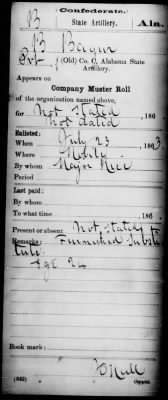 Confederate.
B State Artillery. Ala.
B Bayur
Pvt., (Old) Co. C, Alabama State
Artillery.
Appears on
Company Muster Roll
of the organization named above,
for Not Stated, 186
Not dated
Enlisted:
When July 23, 1863.
Where Mobile
By whom Major Nice
Period
Last paid:
By whom
To what time, 186
Present or absent: Not Stated
Remarks: Furnished Substi
tute.
Age 24
Book mark:
(642)
Copyist.